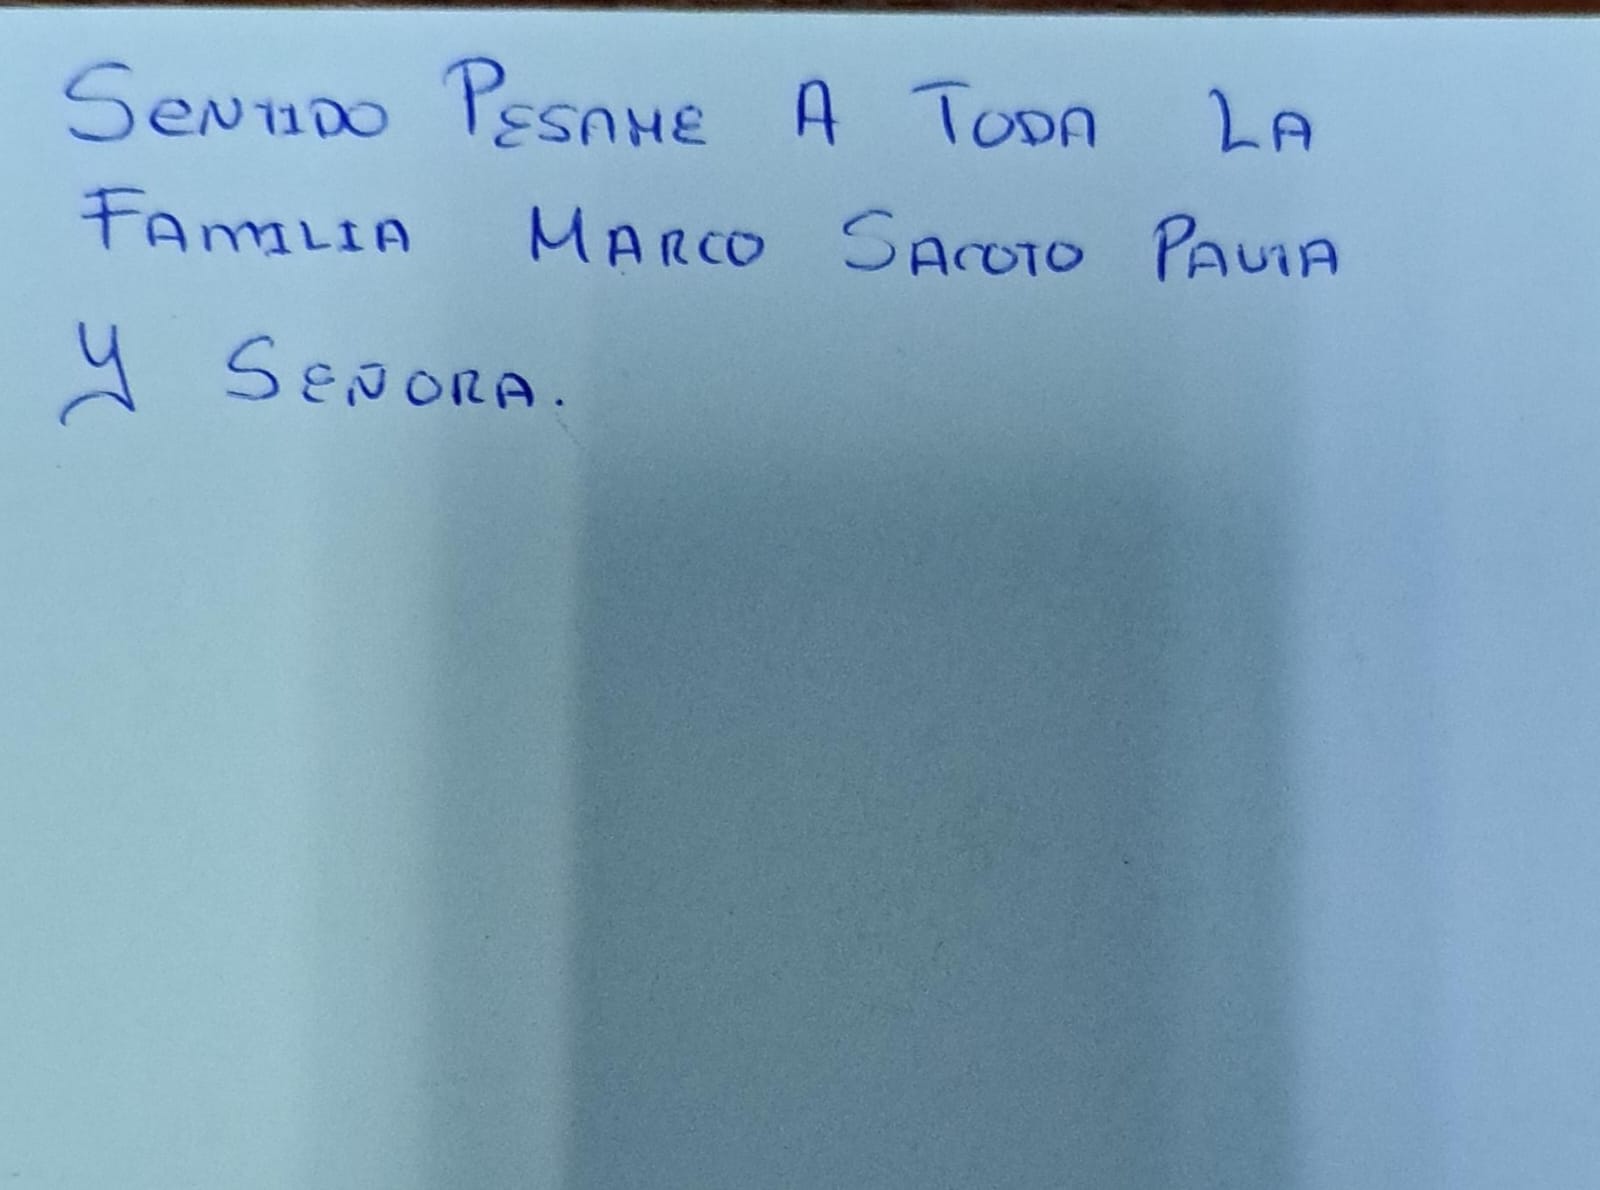 SENTIDO PESAME A TODA LA
FAMILIA MARCO SACOTO PAVIA
Y SEÑORA.